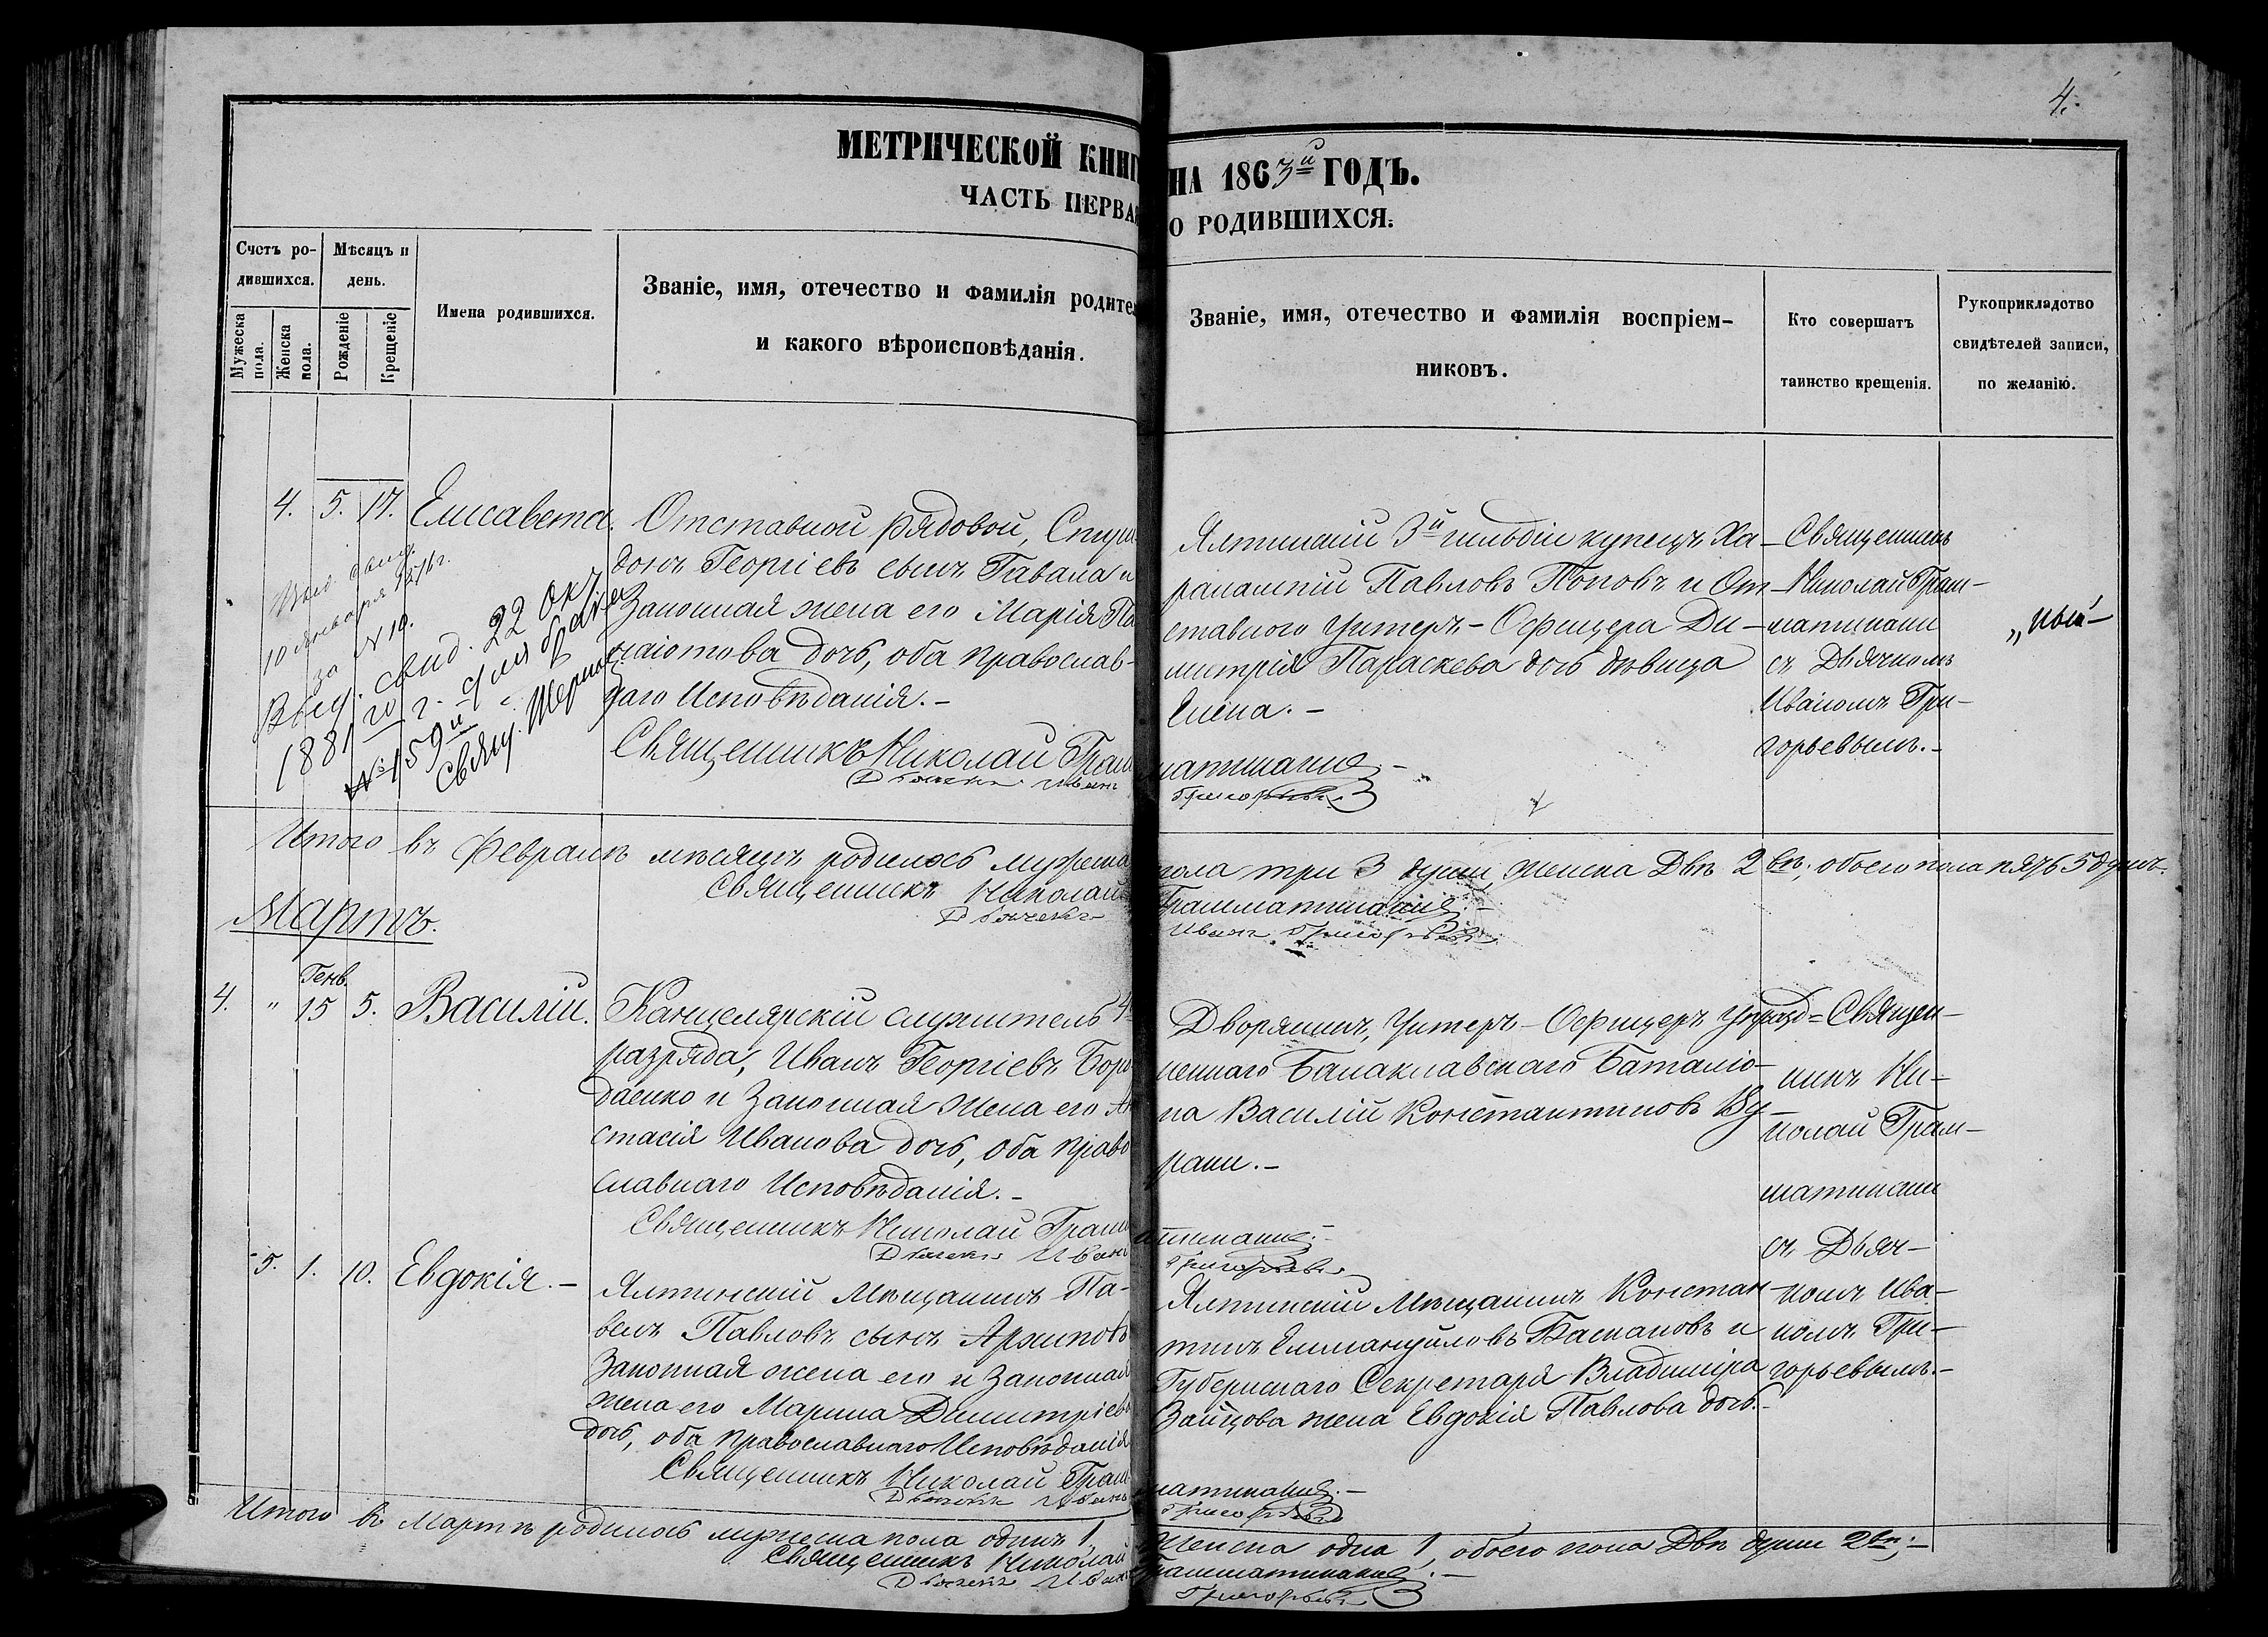 4.
МЕТРИЧЕСКОЙ КНИГ
НА 1863й ГОДЪ.
ЧАСТЬ ПЕРВАЯ
О РОДИВШИХСЯ.
Счетъ ро-
дившихся.
Мужеска пола.
Женска пола.
Мѣсяцъ и
день.
Рожденіе
Крещеніе
Имена родившихся.
Званіе, имя, отечество и фамилія родител
и какого вѣроисповѣданія.
Званіе, имя, отечество и фамилія воспріем-
никовъ.
Кто совершатъ
таинство крещенія.
Рукоприкладство
свидѣтелей записи,
по желанію.
4. 5. 17. Елисавета.
10 января 1876 г.
за № 10.
Выд. свид. 22 Окт
1881 го г. для брака
№ 159й
Свящ.
Отставной рядовой, Спири
донъ Георгіевъ сынъ Гавала и
Законная жена его Марія Па
наіотова дочь, оба православ-
наго Исповѣданія.-
Священникъ Николай Грам
матикаки
Дьячекъ Иванъ
Григорьевъ
Ялтинскій 3й гильдіи купецъ Ха-
ралампій Павловъ Поповъ и От-
ставного Унтеръ-Офицера Ди-
митрія Параскева дочь дѣвица
Елена.-
Священникъ
Николай Грам-
матикаки
съ Дьячкомъ
Иваномъ Гри-
горьевымъ.-
Итого въ Февралѣ мѣсяцѣ родилось мужеска
пола три 3 души, женска Двѣ 2 вѣ, обоего пола пять 5 душъ.
Священникъ Николай
Грамматикаки.-
Дьячекъ
Иванъ Григорьевъ
Мартъ.
Генв.
4. " 15 5. Василій.
Канцелярскій служитель 4
разряда, Иванъ Георгіевъ
и Законная жена его
стасія Иванова дочь, оба право
славнаго Исповѣданія.-
Священникъ Николай Грам
матикаки.-
Дьячекъ Иванъ
Григорьевъ
Дворянинъ, Унтеръ-Офицеръ Упразд=
неннаго Балаклавскаго Баталіо-
на Василій Константиновъ Ку-
рали.-
Священ-
никъ Ни-
колай Грам-
матикаки
съ Дьяч-
комъ Ива-
номъ Гри-
горьевымъ.-
5. 1. 10. Евдокія.-
Ялтинскій Мѣщанинъ Па-
велъ Павловъ сынъ
Законная жена его и Законная
жена его Марина Димитріева
дочь, оба православнаго Исповѣданія
Священникъ Николай Грам
матикаки.-
Дьячекъ Иванъ
Григорьевъ
Ялтинскій Мѣщанинъ Констан-
тинъ Еммануиловъ и
Губернскаго Секретаря Владиміра
Зайцова жена Евдокія Павлова дочь.-
Итого въ Мартѣ родилось мужеска пола одинъ 1,
женска одна 1, обоего пола Двѣ души 2вѣ;-
Священникъ Николай
Грамматикаки.-
Дьячекъ Иванъ
Григорьевъ